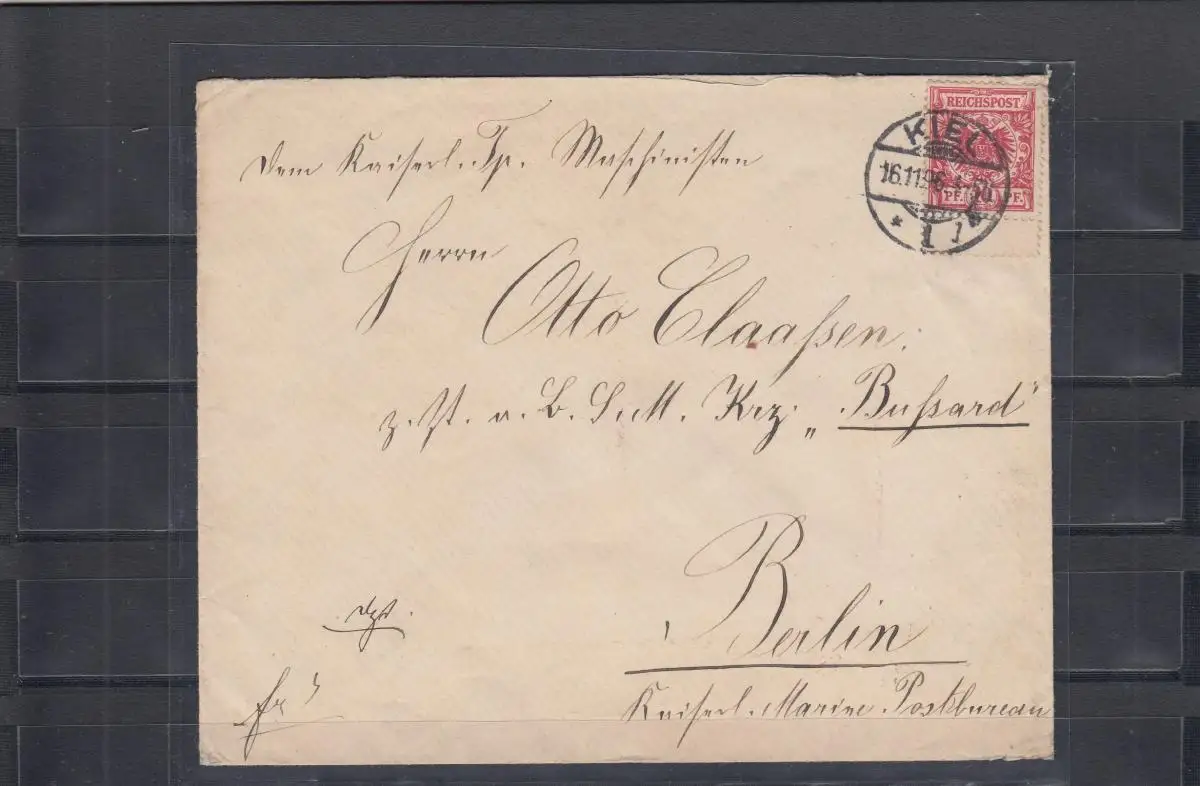 REICHSPOST
KIEL
16.11.96
PF. PF.
* 1
Dem Kaiserl. Tp. Maschinisten
Herrn
Otto Claaßen.
z. Zt. a. B. S.M. Krz. „Bußard“
Berlin
Kaiserl. Marine Postbureau
fr